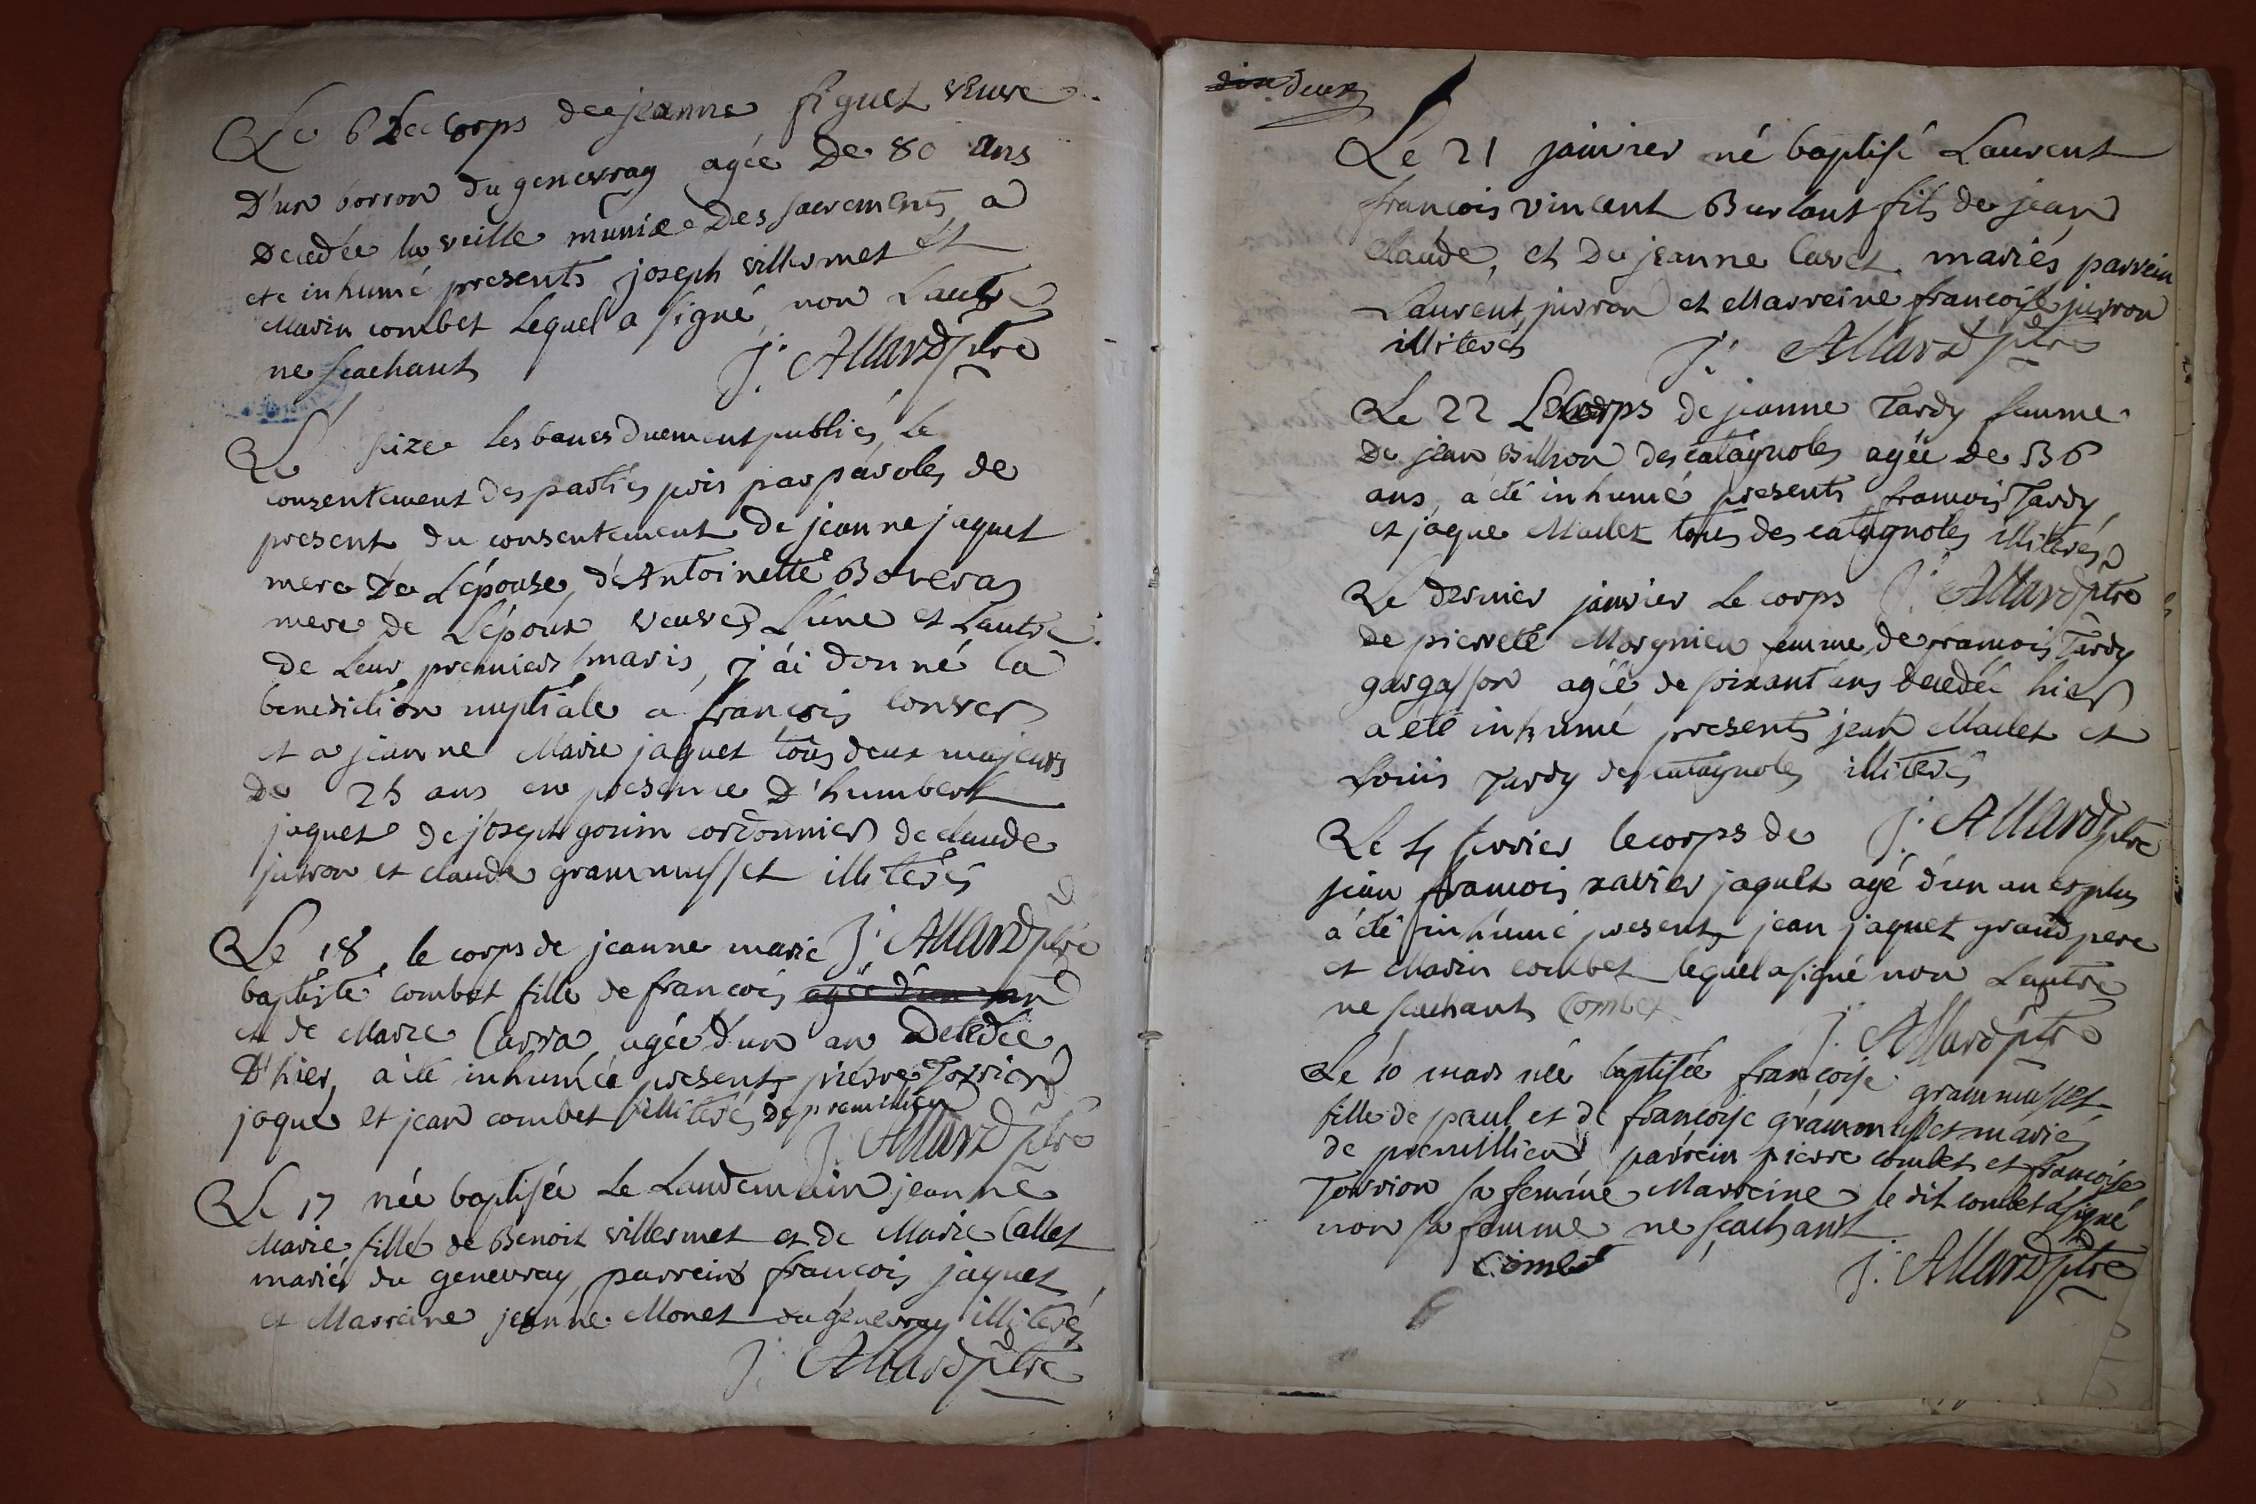 Le 6 Le Corps de jeanne figuet veuve
D'un borron du genevray agée De 80 ans
Decedée la veille munie Des sacrements a
ete inhumé presents joseph villermet et
Marin combet Lequel a signé non Lautre
ne scachant J: Allard ptre
Le seize les bancs duement publiés, le
consentement des parties pris par paroles de
present du consentement De jeanne jaquet
mere De Lépouse, d'Antoinette Boveray
mere de Lépoux veuves L'une et Lautre
de Leur premiers maris, j'ai donné la
benediction nuptiale a françois conver
et a jeanne Marie jaquet tous deux majeurs
de 25 ans en presence D'humbert
jaquet de joseph gonin cordonnier de claude
juvron et claude grammusset illiterés
J: Allard ptre
Le 18, le corps de jeanne marie
baptiste combet fille de françois agée d'un an
et de Marie Carra agée d'un an Decedée
D'hier, a été inhumée presents pierre
jaque et jean combet illiterés de premillieu
J: Allard ptre
Le 17 née baptisée Le Landemain jeanne
Marie fille de Benoit villermet et de Marie Callet
mariés du genevray, parrein françois jaquet
et Marreine jeanne Monet du genevray illiterés
J: Allard ptre
dix deux
Le 21 janvier né baptisé Laurent
françois vincent Burlant fils de jean
claude, et De jeanne Cavet mariés parrein
Laurent juvron et Marreine françoise juvron
illiterés J: Allard ptre
Le 22 Le Corps de jeanne Tardy femme
De jean Billion des catagnoles agée de 36
ans, a été inhumé presents francois Tardy
et jaque Maclet tous des catagnoles illiterés
J: Allard ptre
Le dernier janvier Le corps
de pierrete Morgnieu femme de francois Tardy
gargasson agée de soixant ans decedée hier
a été inhumé presents jean Maclet et
Louis Tardy des catagnoles illiterés
J: Allard ptre
Le 4 fevrier le corps de
jean francois xavier jaquet agé d'un an et plus
a été inhumé presents jean jaquet grand pere
et Marin combet lequel a signé non Lautre
ne scachant Combet
J: Allard ptre
Le 10 mars née baptisée françoise grammusset
fille de paul et de françoise grammusset mariés
de premillieu parrein pierre combet et françoise
Torrion sa femme Marreine le dit combet a signé
non sa femme ne scachant
Combet J: Allard ptre